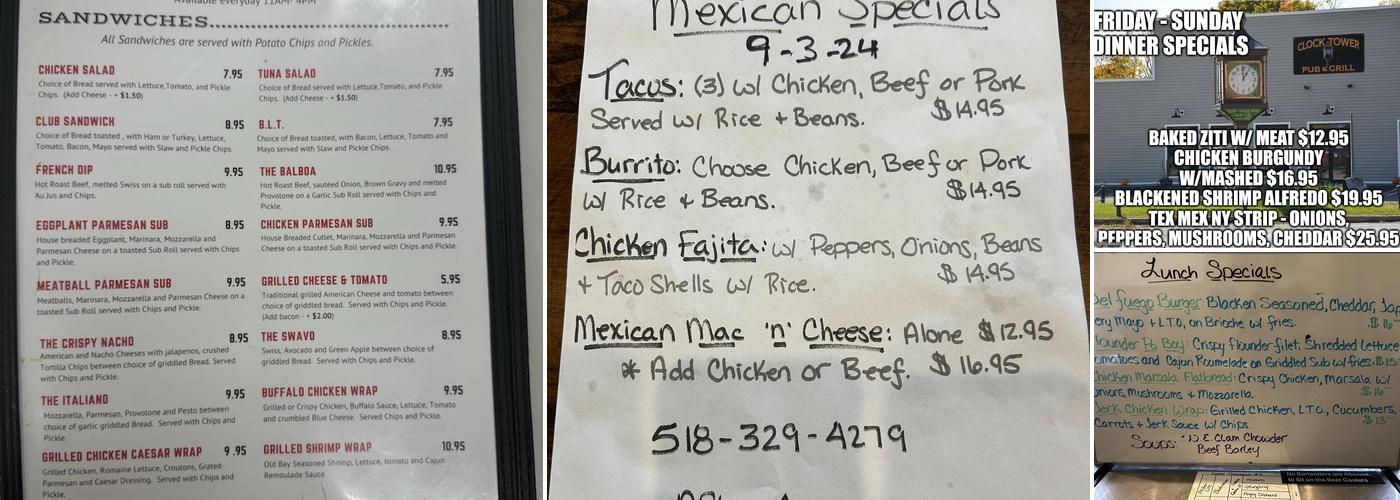 Available everyday 11AM- 4PM
SANDWICHES
All Sandwiches are served with Potato Chips and Pickles.
CHICKEN SALAD 7.95
Choice of Bread served with Lettuce,Tomato, and Pickle
Chips. (Add Cheese - + $1.50)
CLUB SANDWICH 8.95
Choice of Bread toasted , with Ham or Turkey, Lettuce,
Tomato, Bacon, Mayo served with Slaw and Pickle Chips.
FRENCH DIP 9.95
Hot Roast Beef, melted Swiss on a sub roll served with
Au Jus and Chips.
EGGPLANT PARMESAN SUB 8.95
House breaded Eggplant, Marinara, Mozzarella and
Parmesan Cheese on a toasted Sub Roll served with Chips
and Pickle.
MEATBALL PARMESAN SUB 9.95
Meatballs, Marinara, Mozzarella and Parmesan Cheese on a
toasted Sub Roll served with Chips and Pickle.
THE CRISPY NACHO 8.95
American and Nacho Cheeses with jalapenos, crushed
Tortilla Chips between choice of griddled Bread. Served
with Chips and Pickle.
THE ITALIANO 8.95
Mozzarella, Parmesan, Provolone and Pesto between
choice of garlic griddled Bread. Served with Chips and
Pickle.
GRILLED CHICKEN CAESAR WRAP 9.95
Grilled Chicken, Romaine Lettuce, Croutons, Grated
Parmesan and Caesar Dressing. Served with Chips and
Pickle.
TUNA SALAD 7.95
Choice of Bread served with Lettuce,Tomato, and Pickle
Chips. (Add Cheese - + $1.50)
B.L.T. 7.95
Choice of Bread toasted, with Bacon, Lettuce, Tomato and
Mayo served with Slaw and Pickle Chips.
THE BALBOA 10.95
Hot Roast Beef, sautéed Onion, Brown Gravy and melted
Provolone on a Garlic Sub Roll served with Chips and
Pickle.
CHICKEN PARMESAN SUB 9.95
House Breaded Cutlet, Marinara, Mozzarella and Parmesan
Cheese on a toasted Sub Roll served with Chips and Pickle.
GRILLED CHEESE & TOMATO 5.95
Traditional grilled American Cheese and tomato between
choice of griddled bread. Served with Chips and Pickle.
(Add bacon - + $2.00)
THE SWAVO 8.95
Swiss, Avocado and Green Apple between choice of
griddled Bread. Served with Chips and Pickle.
BUFFALO CHICKEN WRAP 9.95
Grilled or Crispy Chicken, Buffalo Sauce, Lettuce, Tomato
and crumbled Blue Cheese. Served Chips and Pickle.
GRILLED SHRIMP WRAP 10.95
Old Bay Seasoned Shrimp, Lettuce, tomato and Cajun
Remoulade Sauce
Mexican Specials
9-3-24
Tacos: (3) w/ Chicken, Beef or Pork
Served w/ Rice + Beans. $14.95
Burrito: Choose Chicken, Beef or Pork
w/ Rice + Beans. $14.95
Chicken Fajita: w/ Peppers, Onions, Beans
+ Taco Shells w/ Rice. $14.95
Mexican Mac 'n' Cheese: Alone $12.95
* Add Chicken or Beef. $16.95
518-329-4279
FRIDAY - SUNDAY
DINNER SPECIALS
CLOCK TOWER
PUB & GRILL
BAKED ZITI W/ MEAT $12.95
CHICKEN BURGUNDY
W/MASHED $16.95
BLACKENED SHRIMP ALFREDO $19.95
TEX MEX NY STRIP - ONIONS,
PEPPERS, MUSHROOMS, CHEDDAR $25.95
Lunch Specials
Del fuego Burger: Blacken Seasoned, Cheddar, Jap
ery Mayo + L.T.O, on Brioche w/ fries. $16
lounder Po Boy: Crispy flounder filet, Shredded Lettuce
omatoes and Cajun Roumelade on Griddled Sub w/ fries. $15
hicken Marsala Flatbread: Crispy Chicken, Marsala w/
nions, Mushrooms + Mozzarella. $16
Jerk Chicken Wrap: Grilled Chicken, L.T.O., Cucumbers,
Carrots + Jerk Sauce w/ Chips. $15
Soups: N.E. Clam Chowder
Beef Barley
No Bartenders are Allowed
to Sit on the Beer Coolers